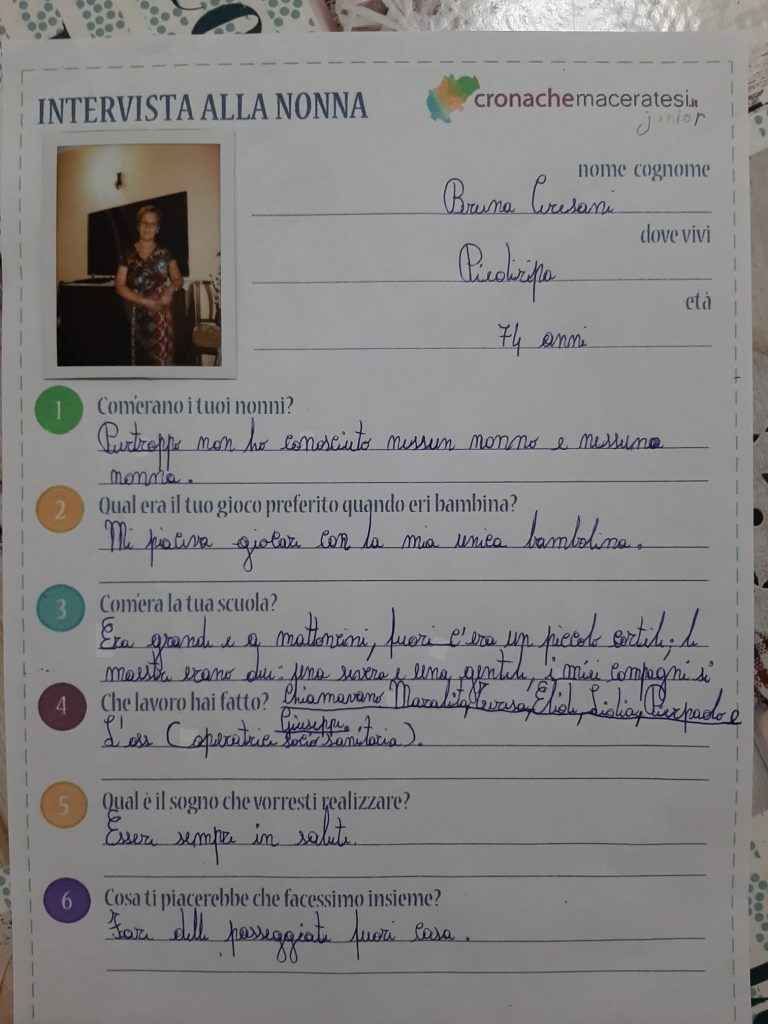 INTERVISTA ALLA NONNA
cronachemaceratesi.it
junior
nome cognome
Bruna Cresani
dove vivi
Piediripa
età
74 anni
1 Com'erano i tuoi nonni?
Purtroppo non ho conosciuto nessun nonno e nessuna
nonna.
2 Qual era il tuo gioco preferito quando eri bambina?
Mi piaceva giocare con la mia unica bambolina.
3 Com'era la tua scuola?
Era grande e a mattoncini, fuori c'era un piccolo cortile; le
maestre erano due: una severa e una gentile, i miei compagni si
4 Che lavoro hai fatto? chiamavano Maralita, Teresa, Elide, Lidia, Pierpaolo e
Giuseppe.
L'oss (operatrice socio sanitaria).
5 Qual è il sogno che vorresti realizzare?
Essere sempre in salute.
6 Cosa ti piacerebbe che facessimo insieme?
Fare delle passeggiate fuori casa.